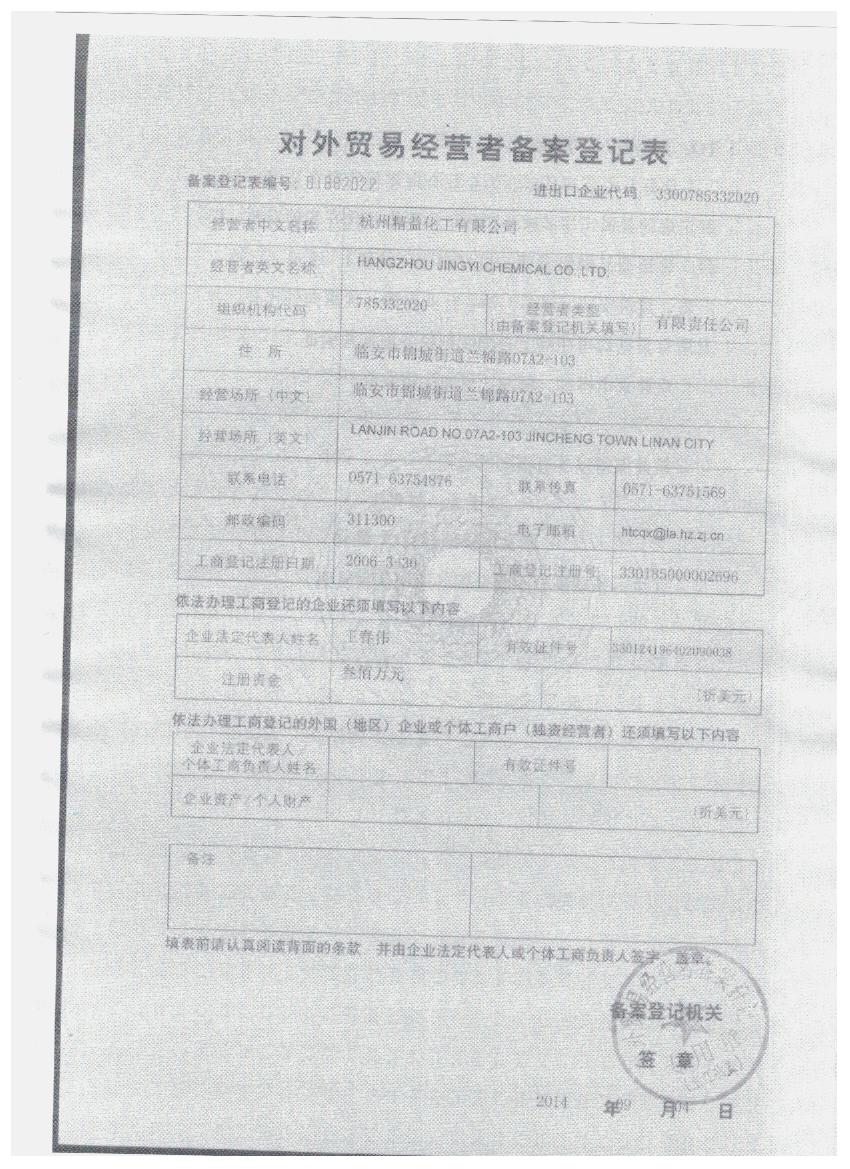 对外贸易经营者备案登记表
备案登记表编号: 01882022 进出口企业代码 3300785332020
经营者中文名称 杭州精益化工有限公司
经营者英文名称 HANGZHOU JINGYI CHEMICAL CO.,LTD.
组织机构代码 785332020 经营者类型 (由备案登记机关填写) 有限责任公司
住 所 临安市锦城街道兰锦路07A2-103
经营场所（中文） 临安市锦城街道兰锦路07A2-103
经营场所（英文） LANJIN ROAD NO.07A2-103 JINCHENG TOWN LINAN CITY
联系电话 0571-63754876 联系传真 0571-63751569
邮政编码 311300 电子邮箱 htcqx@la.hz.zj.cn
工商登记注册日期 2006-3-30 工商登记注册号 330185000002696
依法办理工商登记的企业还须填写以下内容
企业法定代表人姓名 王春伟 有效证件号
注册资金 叁佰万元 (折美元)
依法办理工商登记的外国（地区）企业或个体工商户（独资经营者）还须填写以下内容
企业法定代表人/
个体工商负责人姓名 有效证件号
企业资产/个人财产 (折美元)
备注
填表前请认真阅读背面的条款，并由企业法定代表人或个体工商负责人签字、盖章。
备案登记机关
签 章
2014 年 09 月 04 日